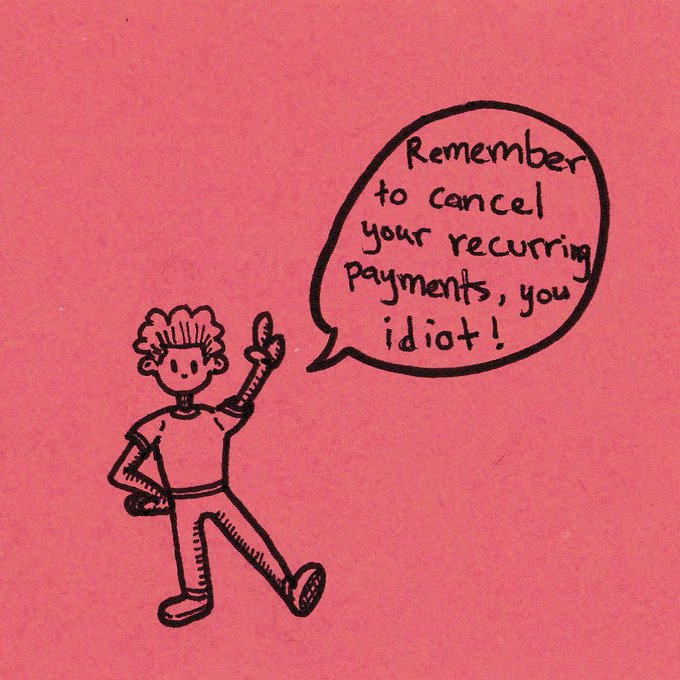 Remember
to cancel
your recurring
payments, you
idiot!